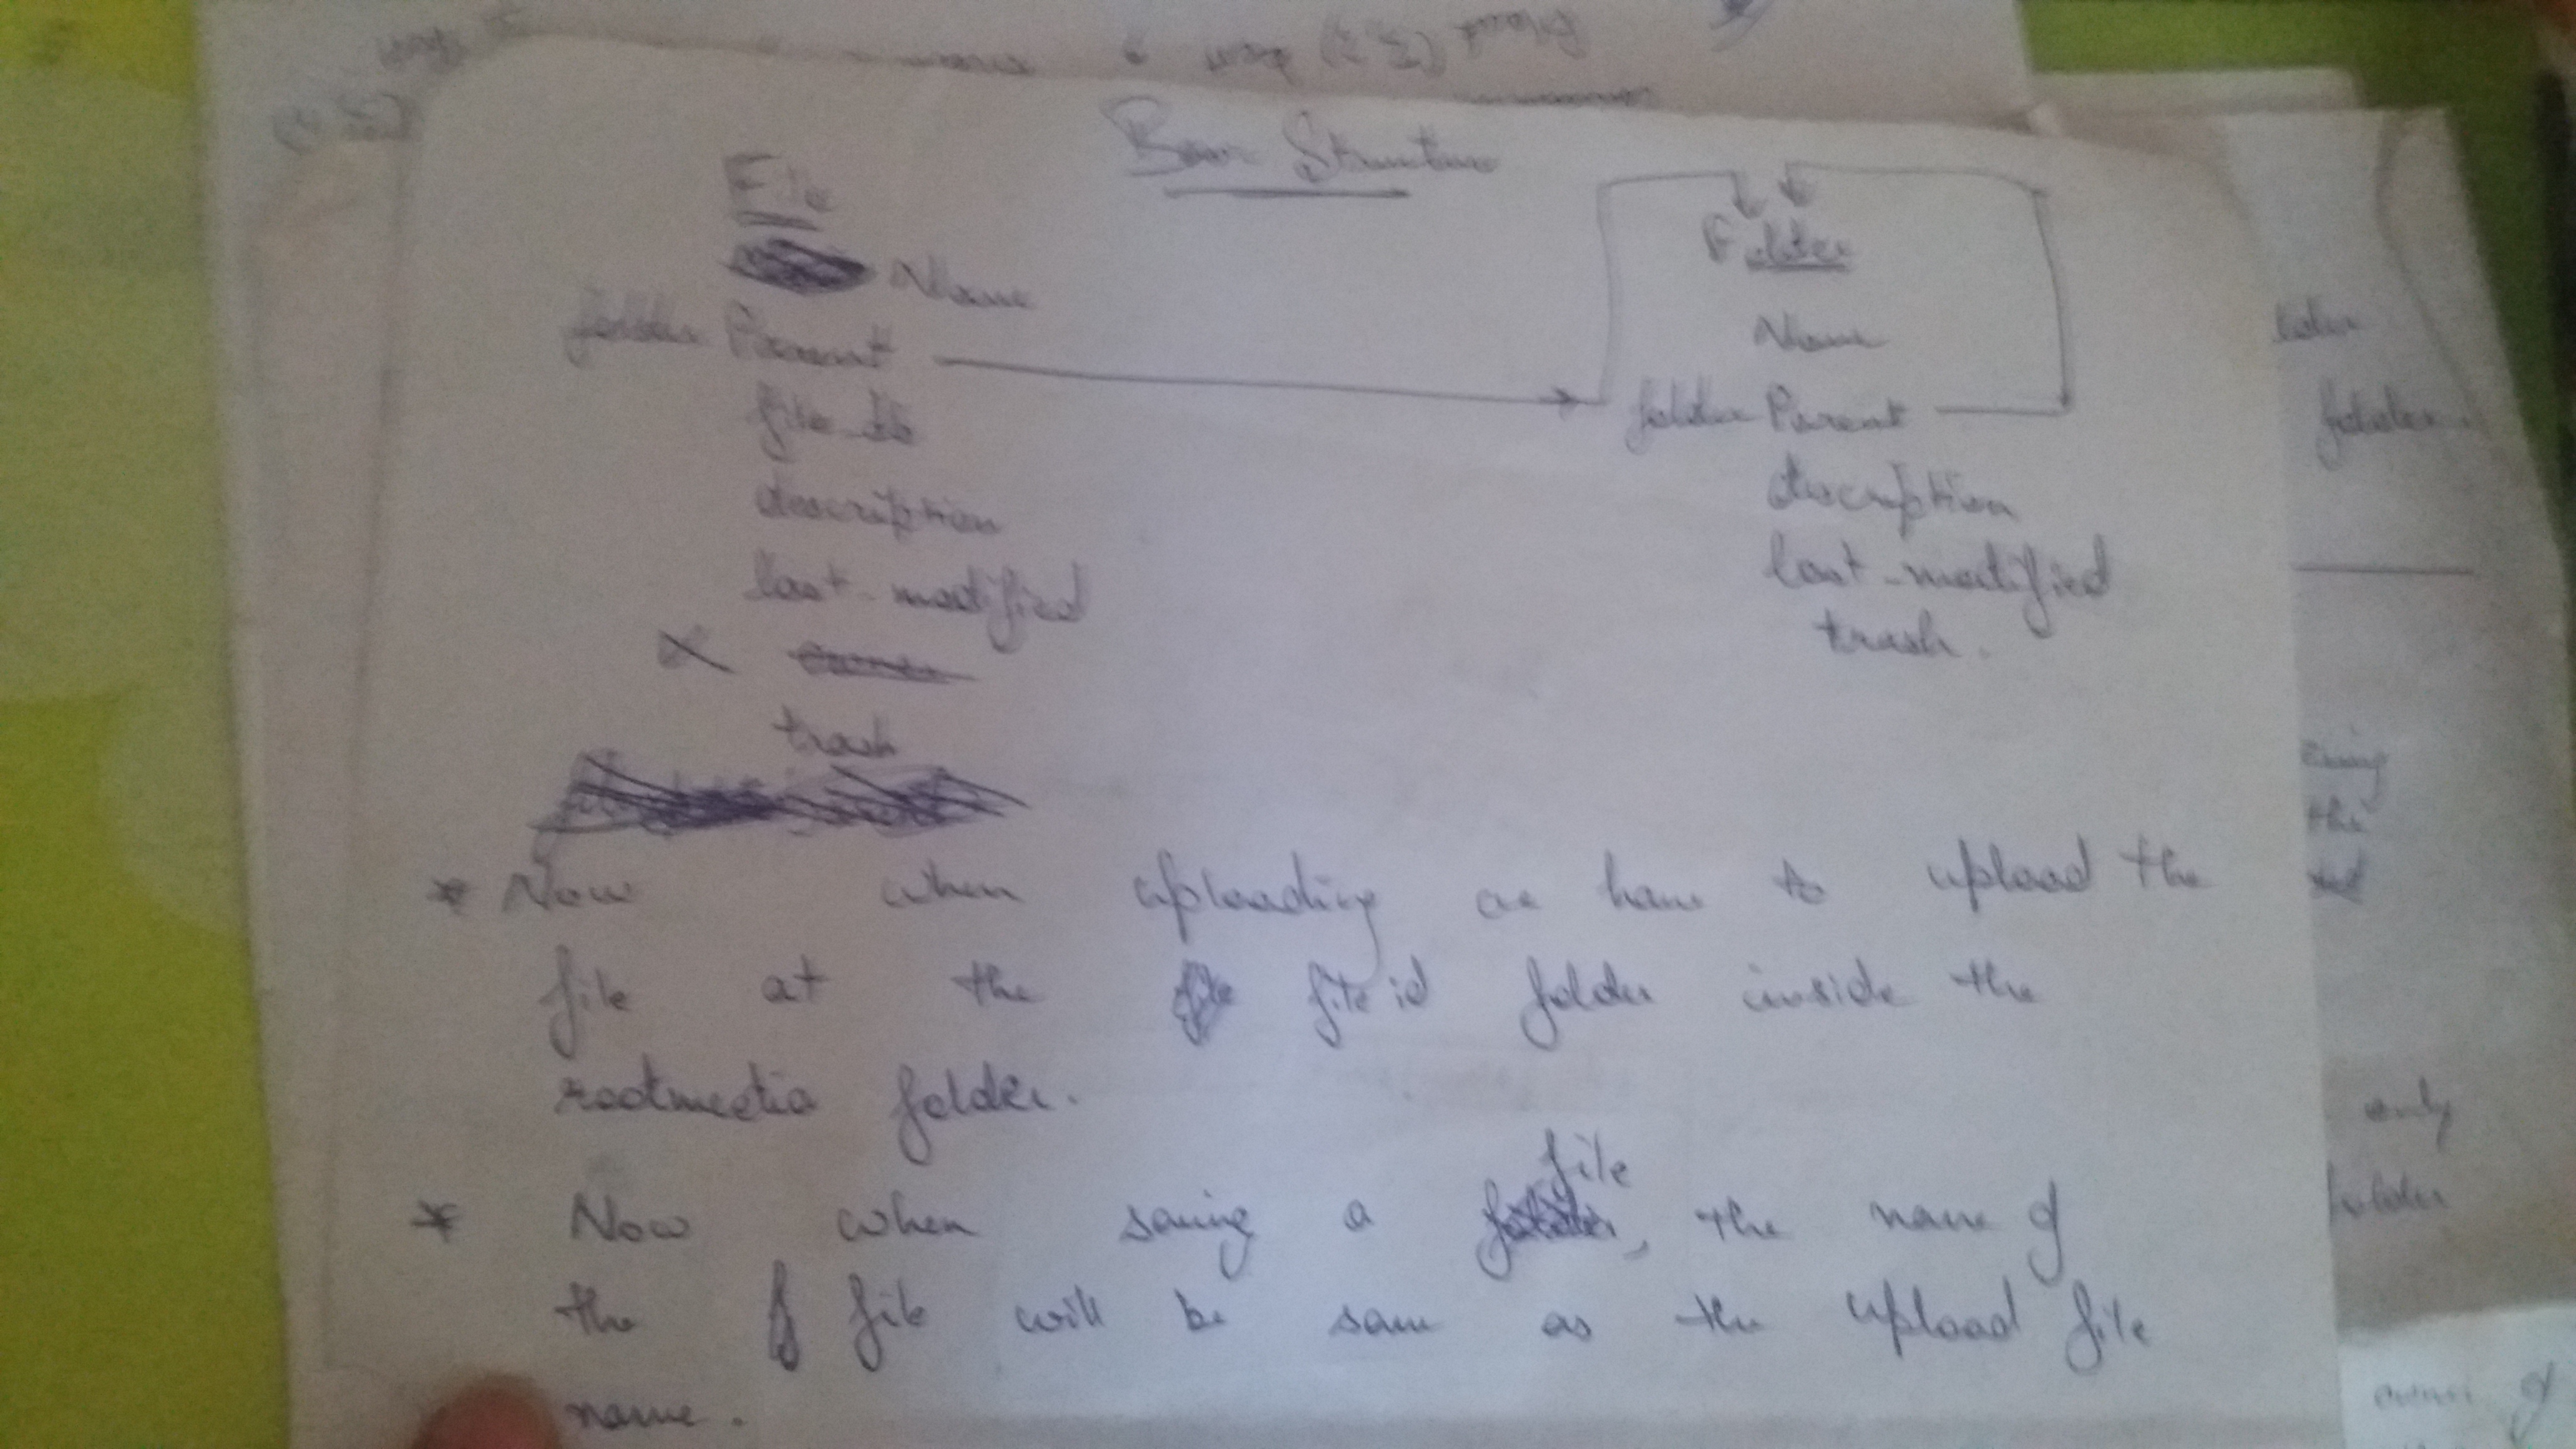 Structure
File
Name
folder Parent
file_id
description
last_modified
trash
Folder
Name
folder Parent
description
last_modified
trash.
* Now when uploading we have to upload the
file at the file id folder inside the
rootmedia folder.
* Now when saving a file, the name of
the file will be same as the upload file
name.